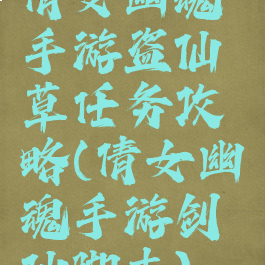 倩女幽魂
手游盗仙
草任务攻
略(倩女幽
魂手游剑